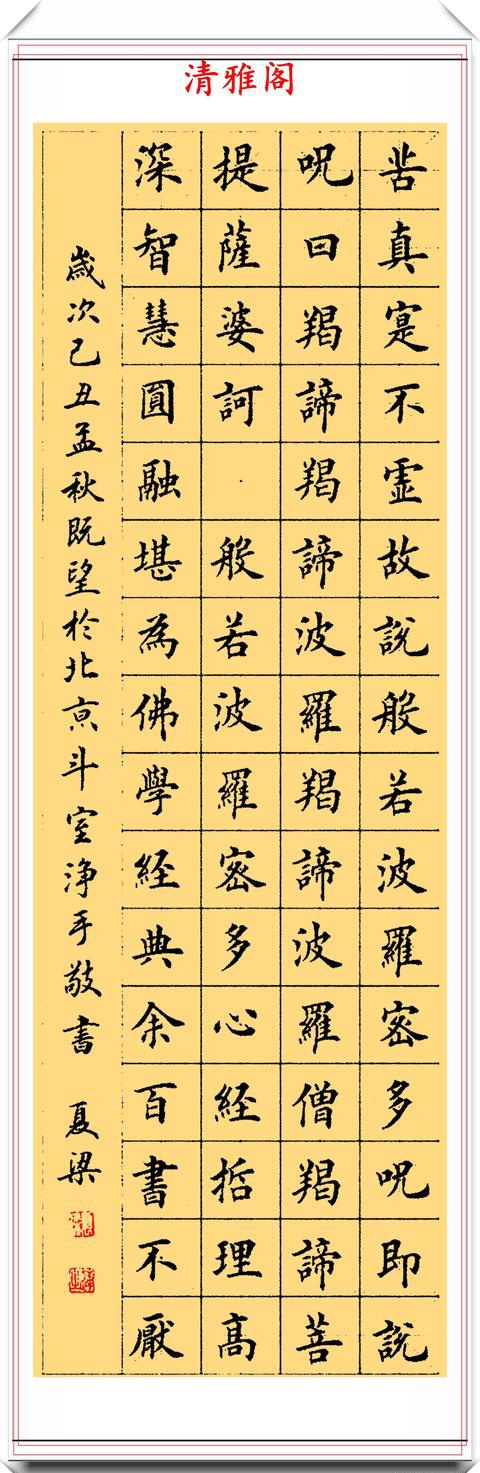 清雅阁
苦真寔不虛故說般若波羅密多呪即說
呪曰羯諦羯諦波羅羯諦波羅僧羯諦菩
提薩婆訶·般若波羅密多心經哲理高
深智慧圓融堪為佛學經典余百書不厭
歲次己丑孟秋既望於北京斗室淨手敬書 夏梁